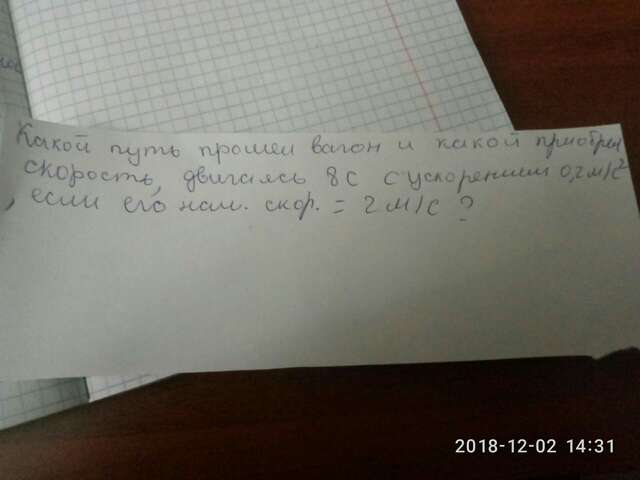 Какой путь прошел вагон и какой приобрел
скорость, двигаясь 8 с с ускорением 0,2 м/с²
, если его нач. скор. = 2 м/с ?
2018-12-02 14:31